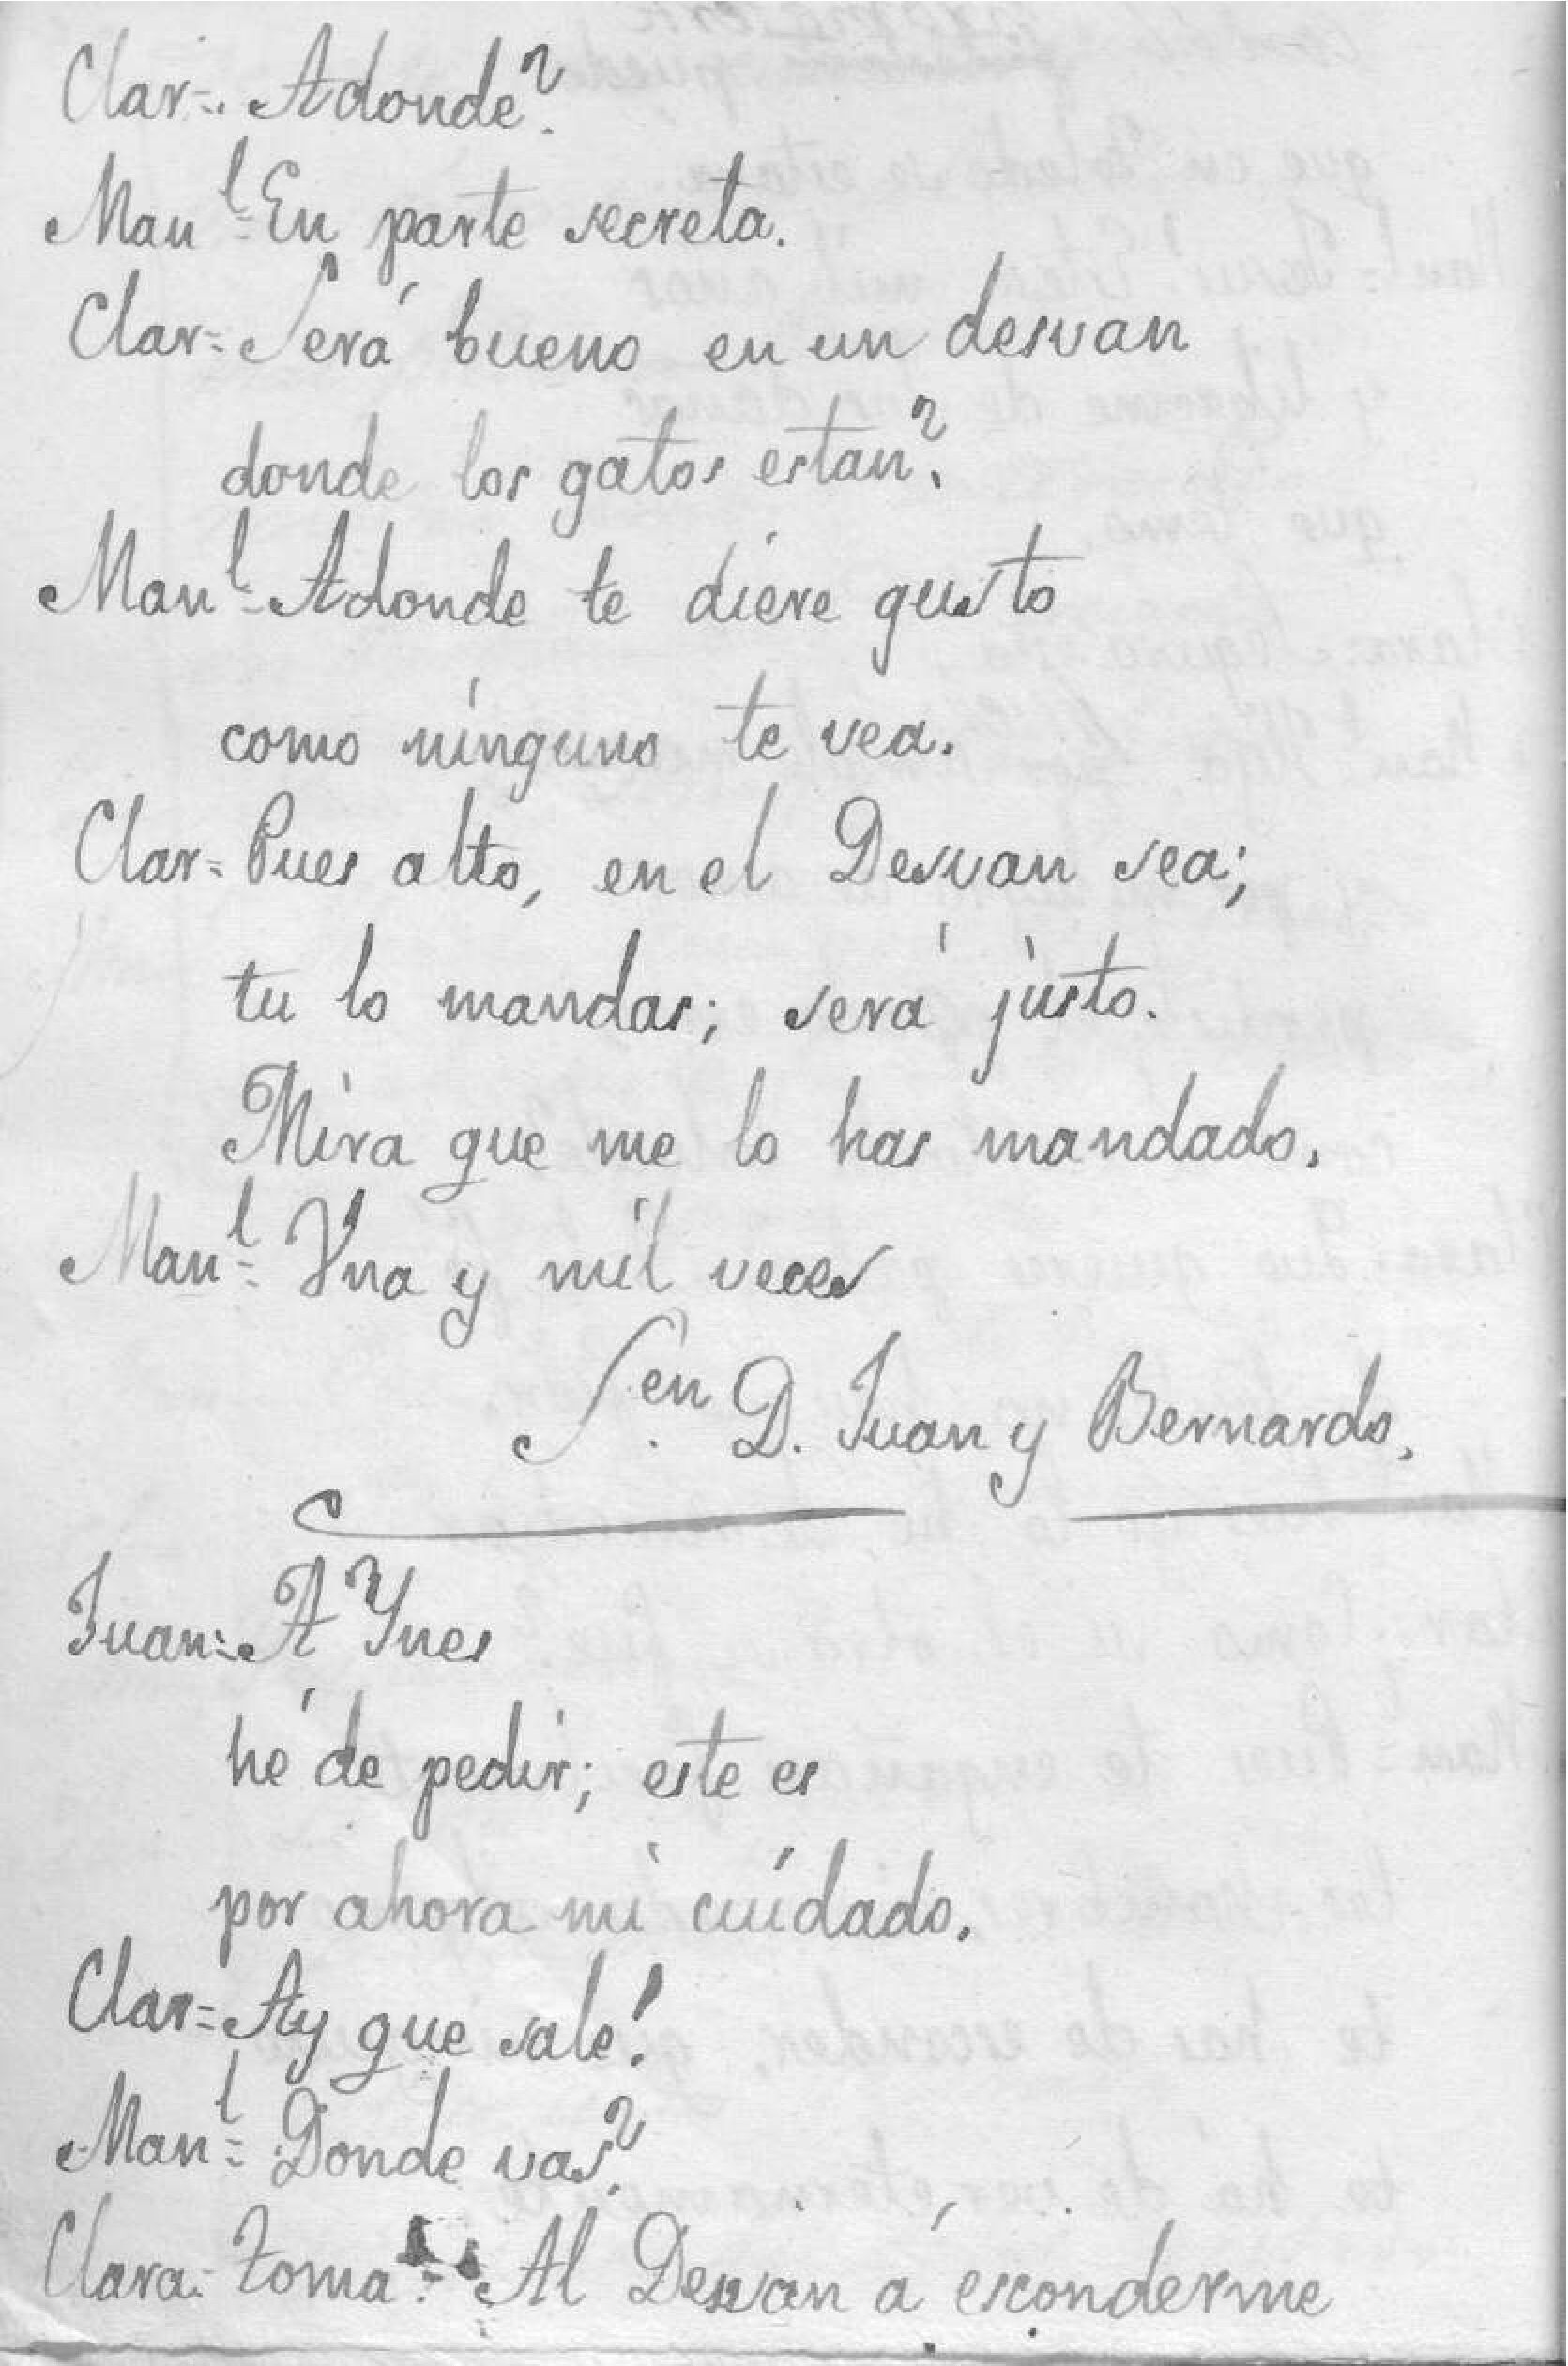 Clar=. Adonde?
Man.l= En parte secreta.
Clar= Será bueno en un desvan
donde los gatos estan?
Man.l= Adonde te diere gusto
como ninguno te vea.
Clar= Pues alto, en el Desvan sea;
tu lo mandas; será justo.
Mira que me lo has mandado.
Man.l= Vna y mil veces
S.en D. Juan y Bernardo.
Juan= A Ynes
hé de pedir; este es
por ahora mi cuidado.
Clar= Ay que sale!
Man.l= Donde vas?
Clara= toma= Al Desvan á esconderme